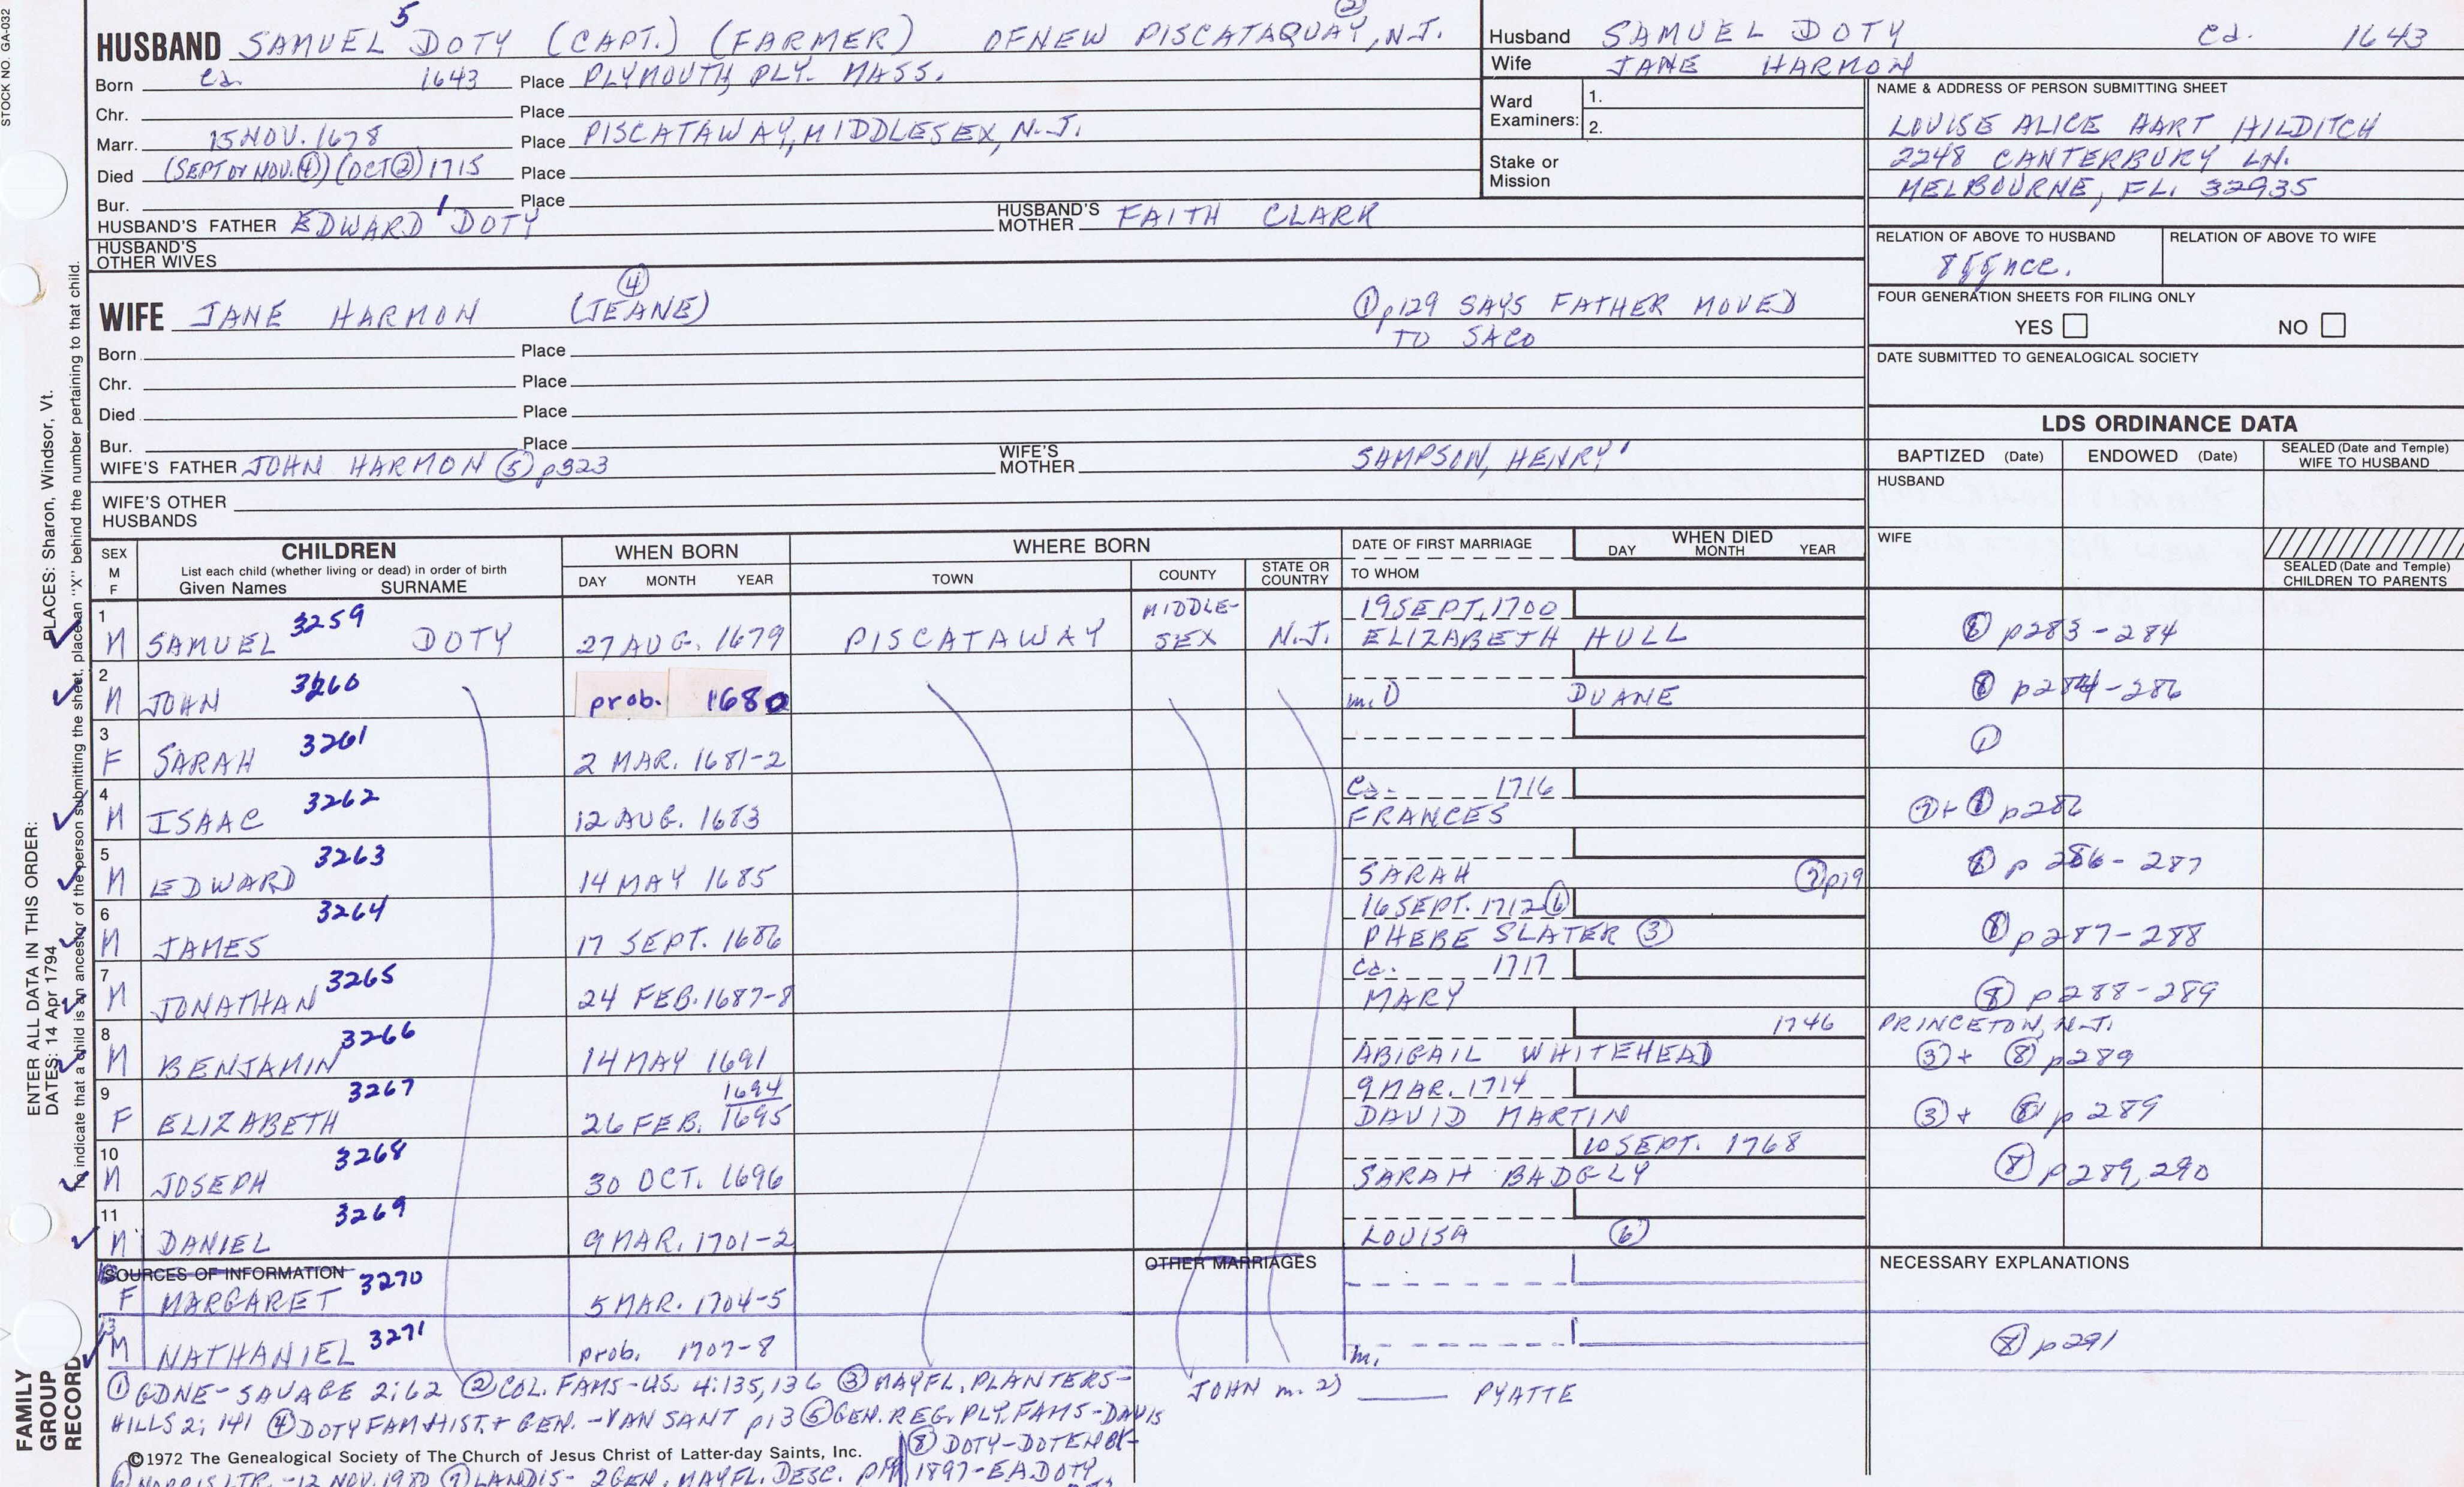 STOCK NO. GA-032
HUSBAND SAMUEL 5 DOTY (CAPT.) (FARMER) OF NEW PISCATAQUAY, N.J. ②
Born ca. 1643 Place PLYMOUTH PLY. MASS.
Chr. Place
Marr. 15 NOV. 1678 Place PISCATAWAY, MIDDLESEX, N.J.
Died (SEPT OR NOV. ④) (OCT ②) 1715 Place
Bur. Place
HUSBAND'S FATHER EDWARD 1 DOTY HUSBAND'S MOTHER FAITH CLARK
HUSBAND'S OTHER WIVES
WIFE JANE HARMON (JEANE) ④ ① p129 SAYS FATHER MOVED
TO SACO
Born Place
Chr. Place
Died Place
Bur. Place
WIFE'S FATHER JOHN HARMON ⑤ p323 WIFE'S MOTHER SAMPSON, HENRY 1
WIFE'S OTHER HUSBANDS
Husband SAMUEL DOTY ca. 1643
Wife JANE HARMON
Ward Examiners: 1.
2.
Stake or Mission
NAME & ADDRESS OF PERSON SUBMITTING SHEET
LOUISE ALICE HART HILDITCH
2248 CANTERBURY LN.
MELBOURNE, FL. 32935
RELATION OF ABOVE TO HUSBAND RELATION OF ABOVE TO WIFE
8ggnce.
FOUR GENERATION SHEETS FOR FILING ONLY
YES NO
DATE SUBMITTED TO GENEALOGICAL SOCIETY
LDS ORDINANCE DATA
BAPTIZED (Date) ENDOWED (Date) SEALED (Date and Temple) WIFE TO HUSBAND
HUSBAND
WIFE
SEALED (Date and Temple) CHILDREN TO PARENTS
SEX M F CHILDREN WHEN BORN WHERE BORN DATE OF FIRST MARRIAGE WHEN DIED
List each child (whether living or dead) in order of birth
Given Names SURNAME DAY MONTH YEAR TOWN COUNTY STATE OR COUNTRY TO WHOM DAY MONTH YEAR
1 19 SEPT, 1700
M SAMUEL 3259 DOTY 27 AUG. 1679 PISCATAWAY MIDDLE-SEX N.J. ELIZABETH HULL ⑧ p283-284
2
M JOHN 3260 prob. 1680 m. 1) DUANE ⑧ p284-286
3
F SARAH 3261 2 MAR. 1681-2 ①
4 ca. 1716
M ISAAC 3262 12 AUG. 1683 FRANCES ⑦+ ⑧ p286
5
M EDWARD 3263 14 MAY 1685 SARAH ⑦ p19 ⑧ p 286-287
6 16 SEPT. 1712 ⑥
M JAMES 3264 17 SEPT. 1686 PHEBE SLATER ③ ⑧ p287-288
7 ca. 1717
M JONATHAN 3265 24 FEB. 1687-8 MARY ⑧ p288-289
8 1746 PRINCETON, N.J.
M BENJAMIN 3266 14 MAY 1691 ABIGAIL WHITEHEAD ③+ ⑧ p289
9 1694 9 MAR. 1714
F ELIZABETH 3267 26 FEB. 1695 DAVID MARTIN ③+ ⑧ p 289
10 10 SEPT. 1768
M JOSEPH 3268 30 OCT. 1696 SARAH BADGLY ⑧ p289, 290
11
M DANIEL 3269 9 MAR. 1701-2 LOUISA ⑥
SOURCES OF INFORMATION OTHER MARRIAGES NECESSARY EXPLANATIONS
F MARGARET 3270 5 MAR. 1704-5
13
M NATHANIEL 3271 prob. 1707-8 m. ⑧ p291
① GDNE-SAVAGE 2:62 ② COL. FAMS-US. 4:135,136 ③ MAYFL. PLANTERS-
JOHN m. 2) PYATTE
HILLS 2; 141 ④ DOTY FAM HIST. + GEN. -VAN SANT p13 ⑤ GEN. REG. PLY. FAMS-DAVIS
©1972 The Genealogical Society of The Church of Jesus Christ of Latter-day Saints, Inc.
⑧ DOTY-DOTEN BK-
1897-E.A. DOTY
⑥ NORRIS LTR. -12 NOV. 1980 ⑦ LANDIS- 2 GEN. MAYFL. DESC. p19
PLACES: Sharon, Windsor, Vt.
ENTER ALL DATA IN THIS ORDER:
DATES: 14 Apr 1794
To indicate that a child is an ancestor of the person submitting the sheet, place an "X" behind the number pertaining to that child.
FAMILY
GROUP
RECORD